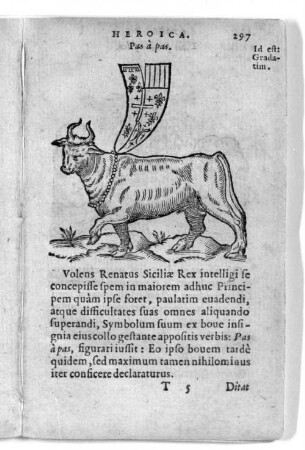 HEROICA. 297
Pas à pas.
Id est:
Grada-
tim.
Volens Renatus Siciliæ Rex intelligi se
concepisse spem in maiorem adhuc Princi-
pem quàm ipse foret, paulatim euadendi,
atque difficultates suas omnes aliquando
superandi, Symbolum suum ex boue insi-
gnia eius collo gestante appositis verbis: Pas
à pas, figurari iussit: Eo ipso bouem tardè
quidem, sed maximum tamen nihilominus
iter conficere declaraturus.
T 5 Ditat